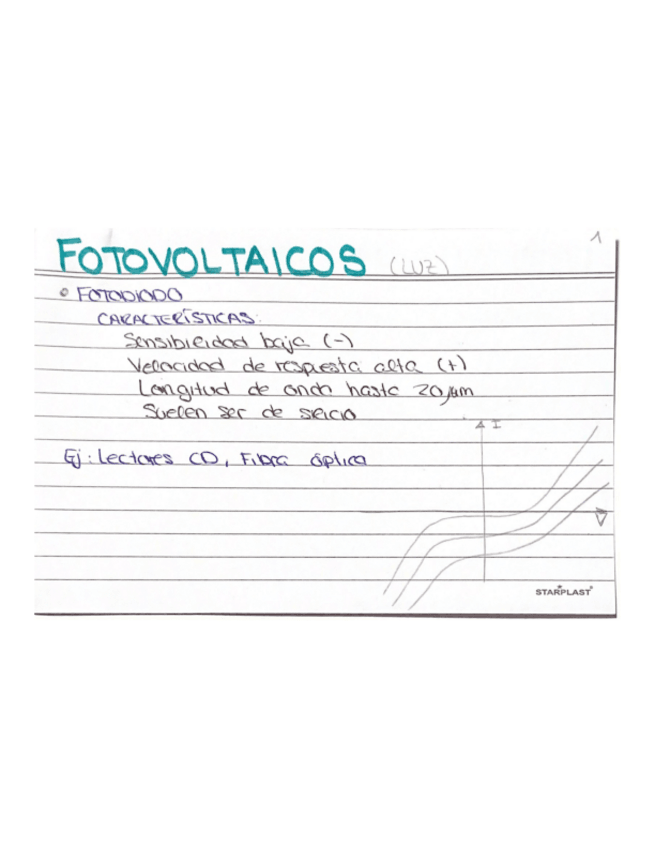 1
FOTOVOLTAICOS (LUZ)
FOTODIODO
CARACTERÍSTICAS:
Sensibilidad baja (-)
Velocidad de respuesta alta (+)
Longitud de onda hasta 20 μm
Suelen ser de silicio
Ej: Lectores CD, Fibra óptica
I
V
STARPLAST